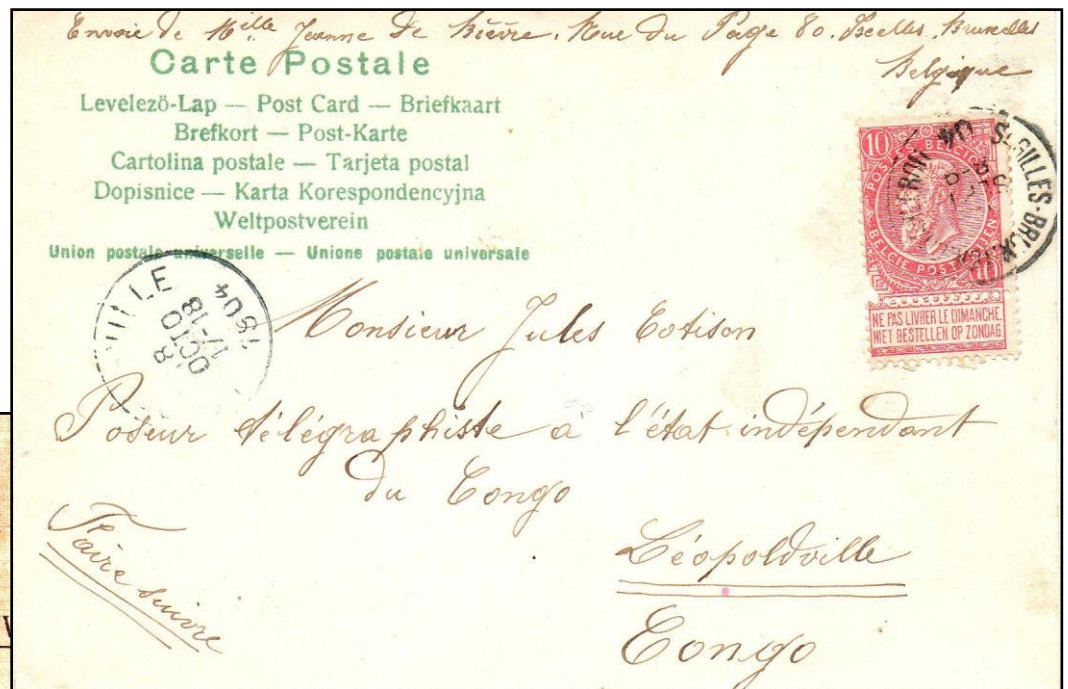 Envoie de Melle Jeanne De Bièvre. Rue du Page 80. Ixelles. Bruxelles
Belgique
Carte Postale
Levelező-Lap — Post Card — Briefkaart
Brefkort — Post-Karte
Cartolina postale — Tarjeta postal
Dopisnice — Karta Korespondencyjna
Weltpostverein
Union postale universelle — Unione postale universale
10 10
POSTES BELGIQUE
BELGIE POSTERIJEN
NE PAS LIVRER LE DIMANCHE
NIET BESTELLEN OP ZONDAG
ST-GILLES-BRUX
VILLE
OCTO-8
17-18
Monsieur Jules Cotison
Poseur télégraphiste à l'état indépendant
du Congo
Faire suivre
Léopoldville
Congo